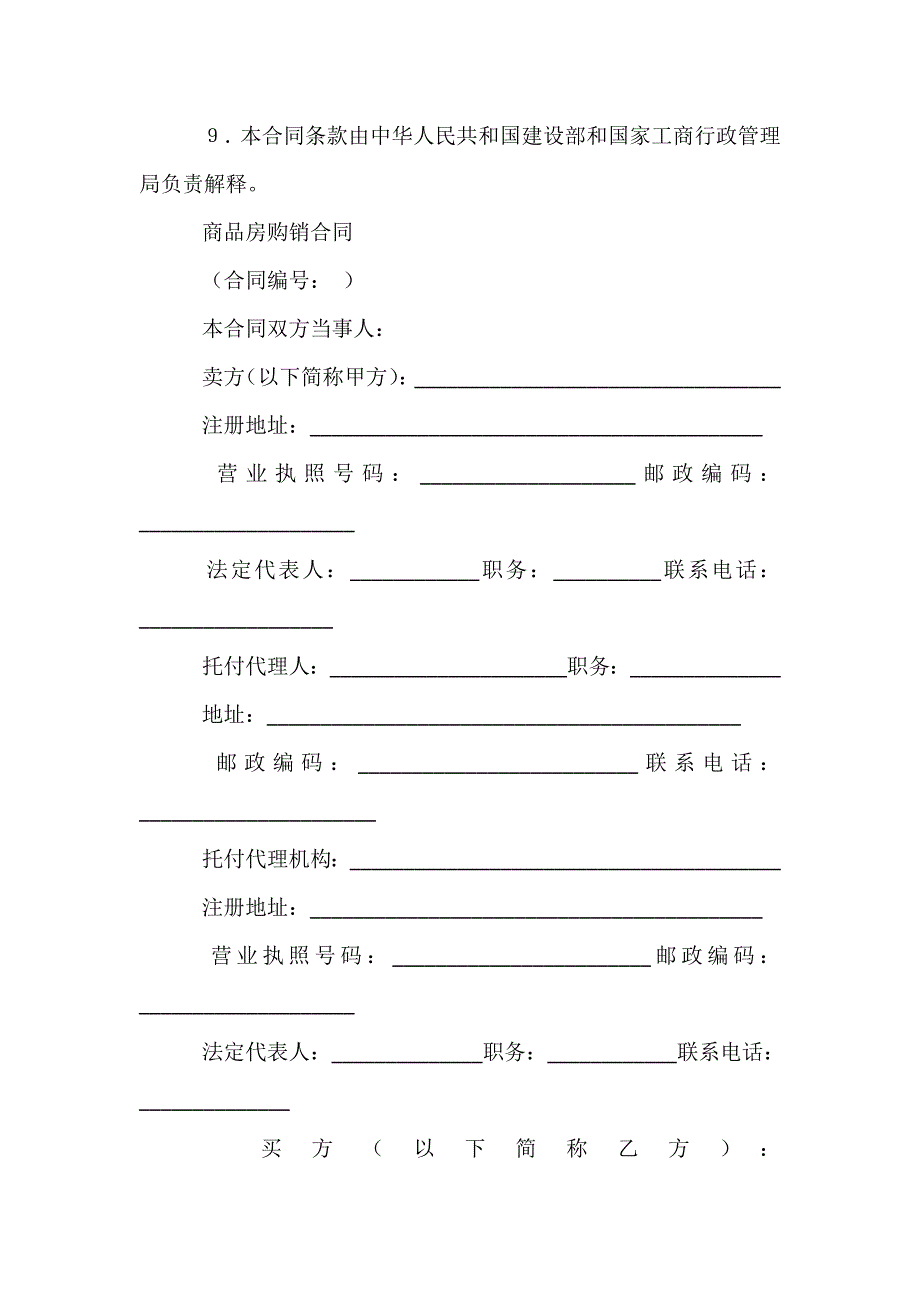 ９．本合同条款由中华人民共和国建设部和国家工商行政管理
局负责解释。
商品房购销合同
（合同编号： ）
本合同双方当事人：
卖方（以下简称甲方）：__________________________________
注册地址：__________________________________________
营业执照号码：____________________邮政编码：
____________________
法定代表人：____________职务：__________联系电话：
__________________
托付代理人：______________________职务：______________
地址：____________________________________________
邮政编码：__________________________联系电话：
______________________
托付代理机构：________________________________________
注册地址：__________________________________________
营业执照号码：________________________邮政编码：
____________________
法定代表人：______________职务：____________联系电话：
______________
买方（以下简称乙方）：